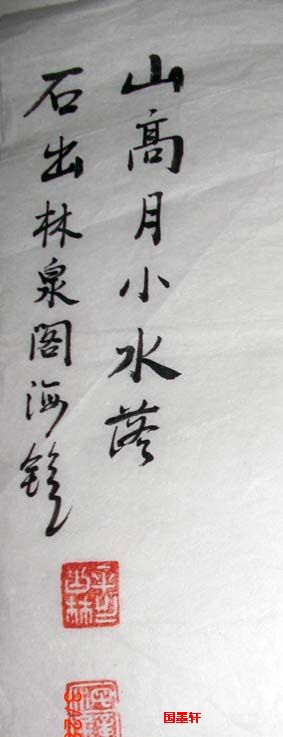 山高月小水落
石出林泉阁海镗
国墨轩